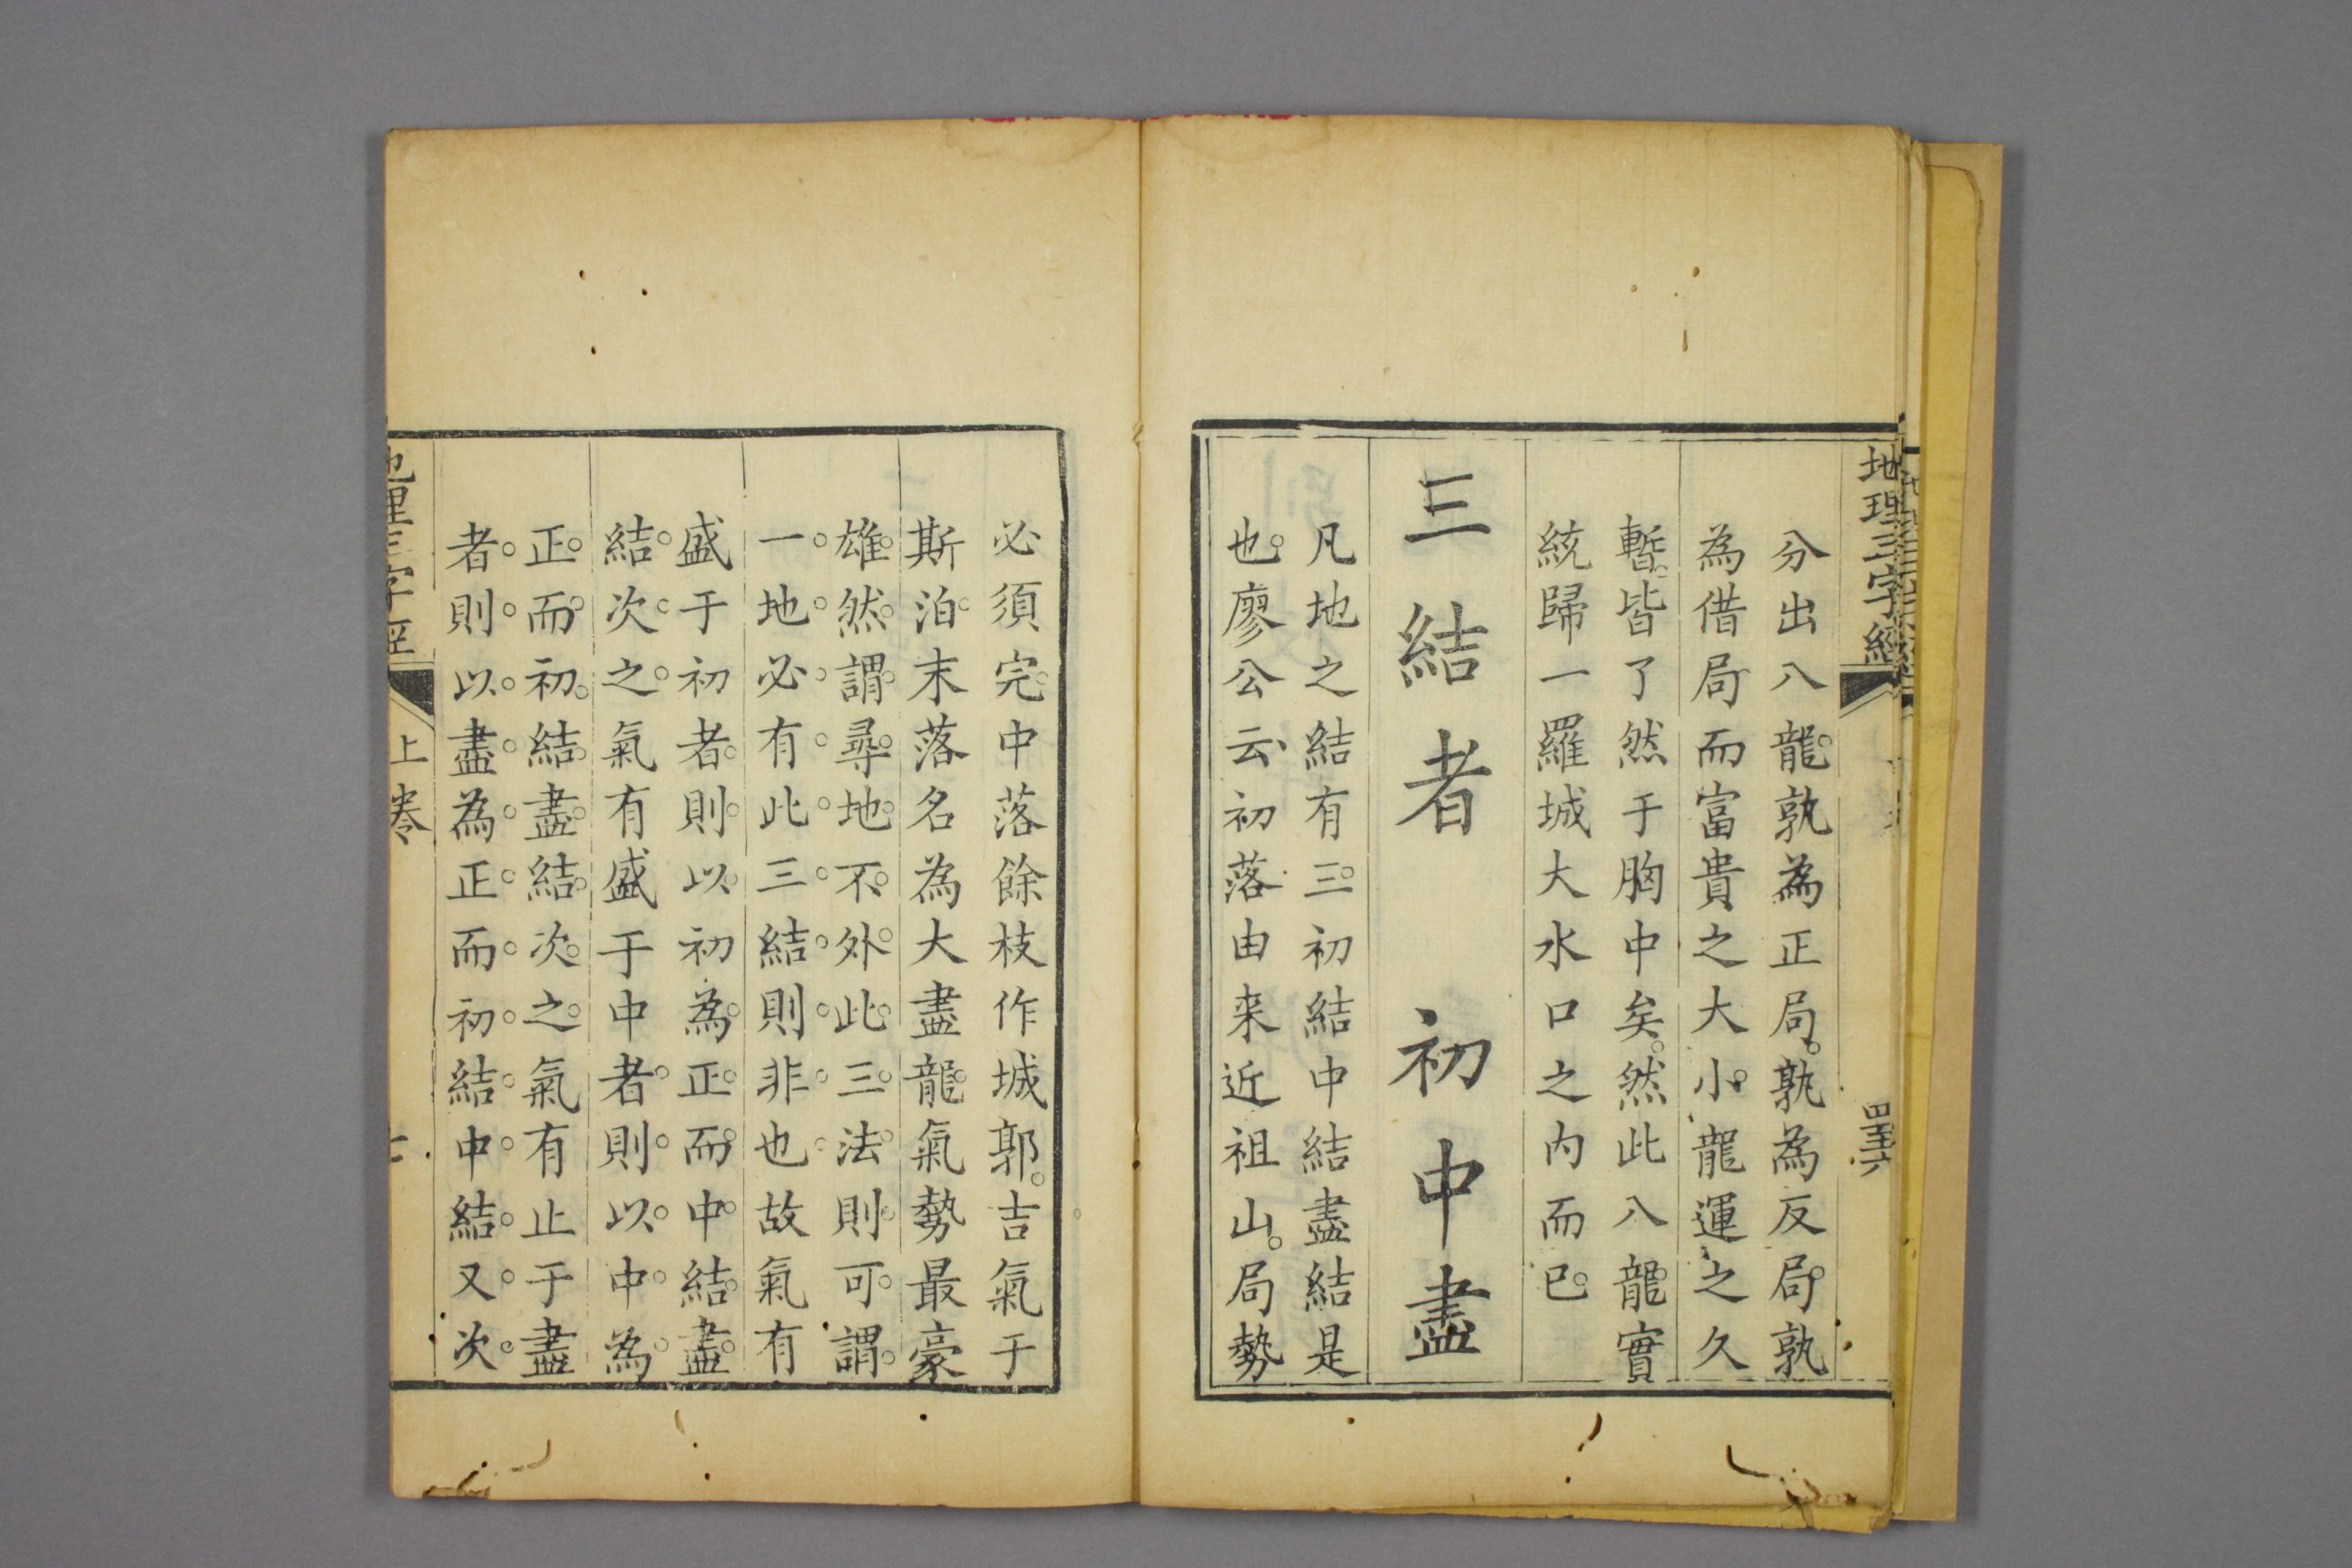 地理三字經
分出八龍。孰為正局。孰為反局。孰
為借局而富貴之大小。龍運之久
暫。皆了然于胸中矣。然此八龍實
統歸一羅城大水口之內而已。
三結者 初中盡
凡地之結有三。初結中結盡結是
也。廖公云初落由来近祖山。局勢
必須完。中落餘枝作城郭。吉氣于
斯泊。末落名為大盡龍。氣勢最豪
雄。然謂尋地不外此三法則可。謂
一地必有此三結則非也。故氣有
盛于初者。則以初為正。而中結盡
結次之。氣有盛于中者。則以中為
正。而初結盡結次之。氣有止于盡
者。則以盡為正而初結中結又次
上卷